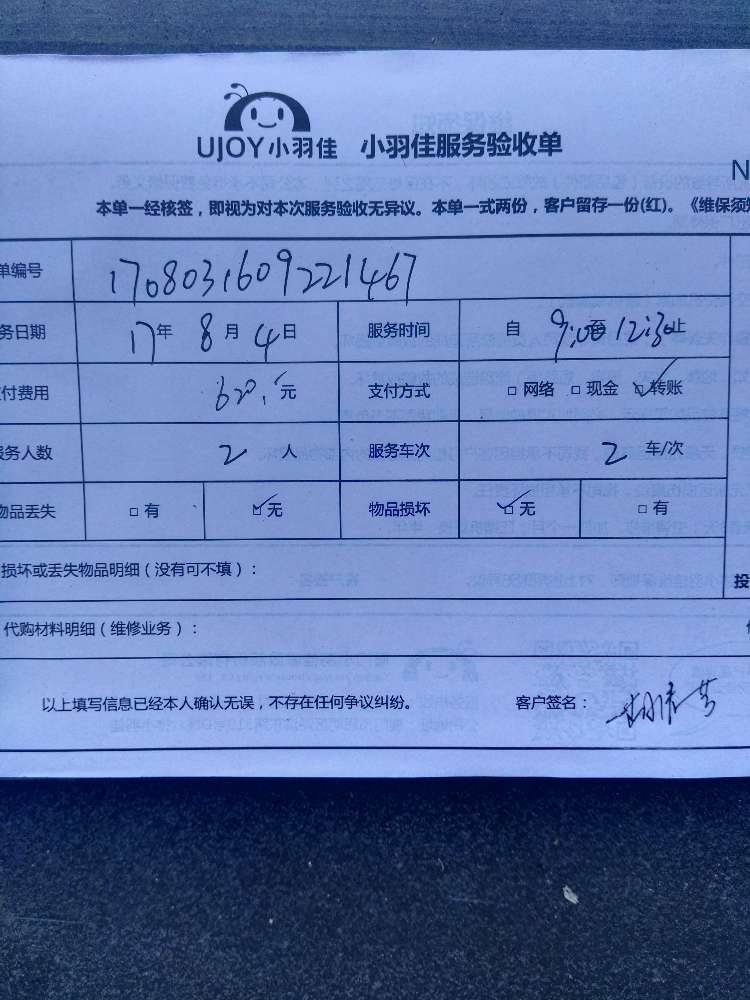 UJOY小羽佳 小羽佳服务验收单
N
本单一经核签，即视为对本次服务验收无异议。本单一式两份，客户留存一份(红)。《维保须知
单编号 1708031609221467
务日期 17年 8月 4日 服务时间 自 9:00至12:30止
付费用 620.元 支付方式 □ 网络 □ 现金 ☑转账
服务人数 2 人 服务车次 2 车/次
物品丢失 □ 有 ☑无 物品损坏 ☑无 □ 有
损坏或丢失物品明细（没有可不填）：
投
代购材料明细（维修业务）：
以上填写信息已经本人确认无误，不存在任何争议纠纷。 客户签名：